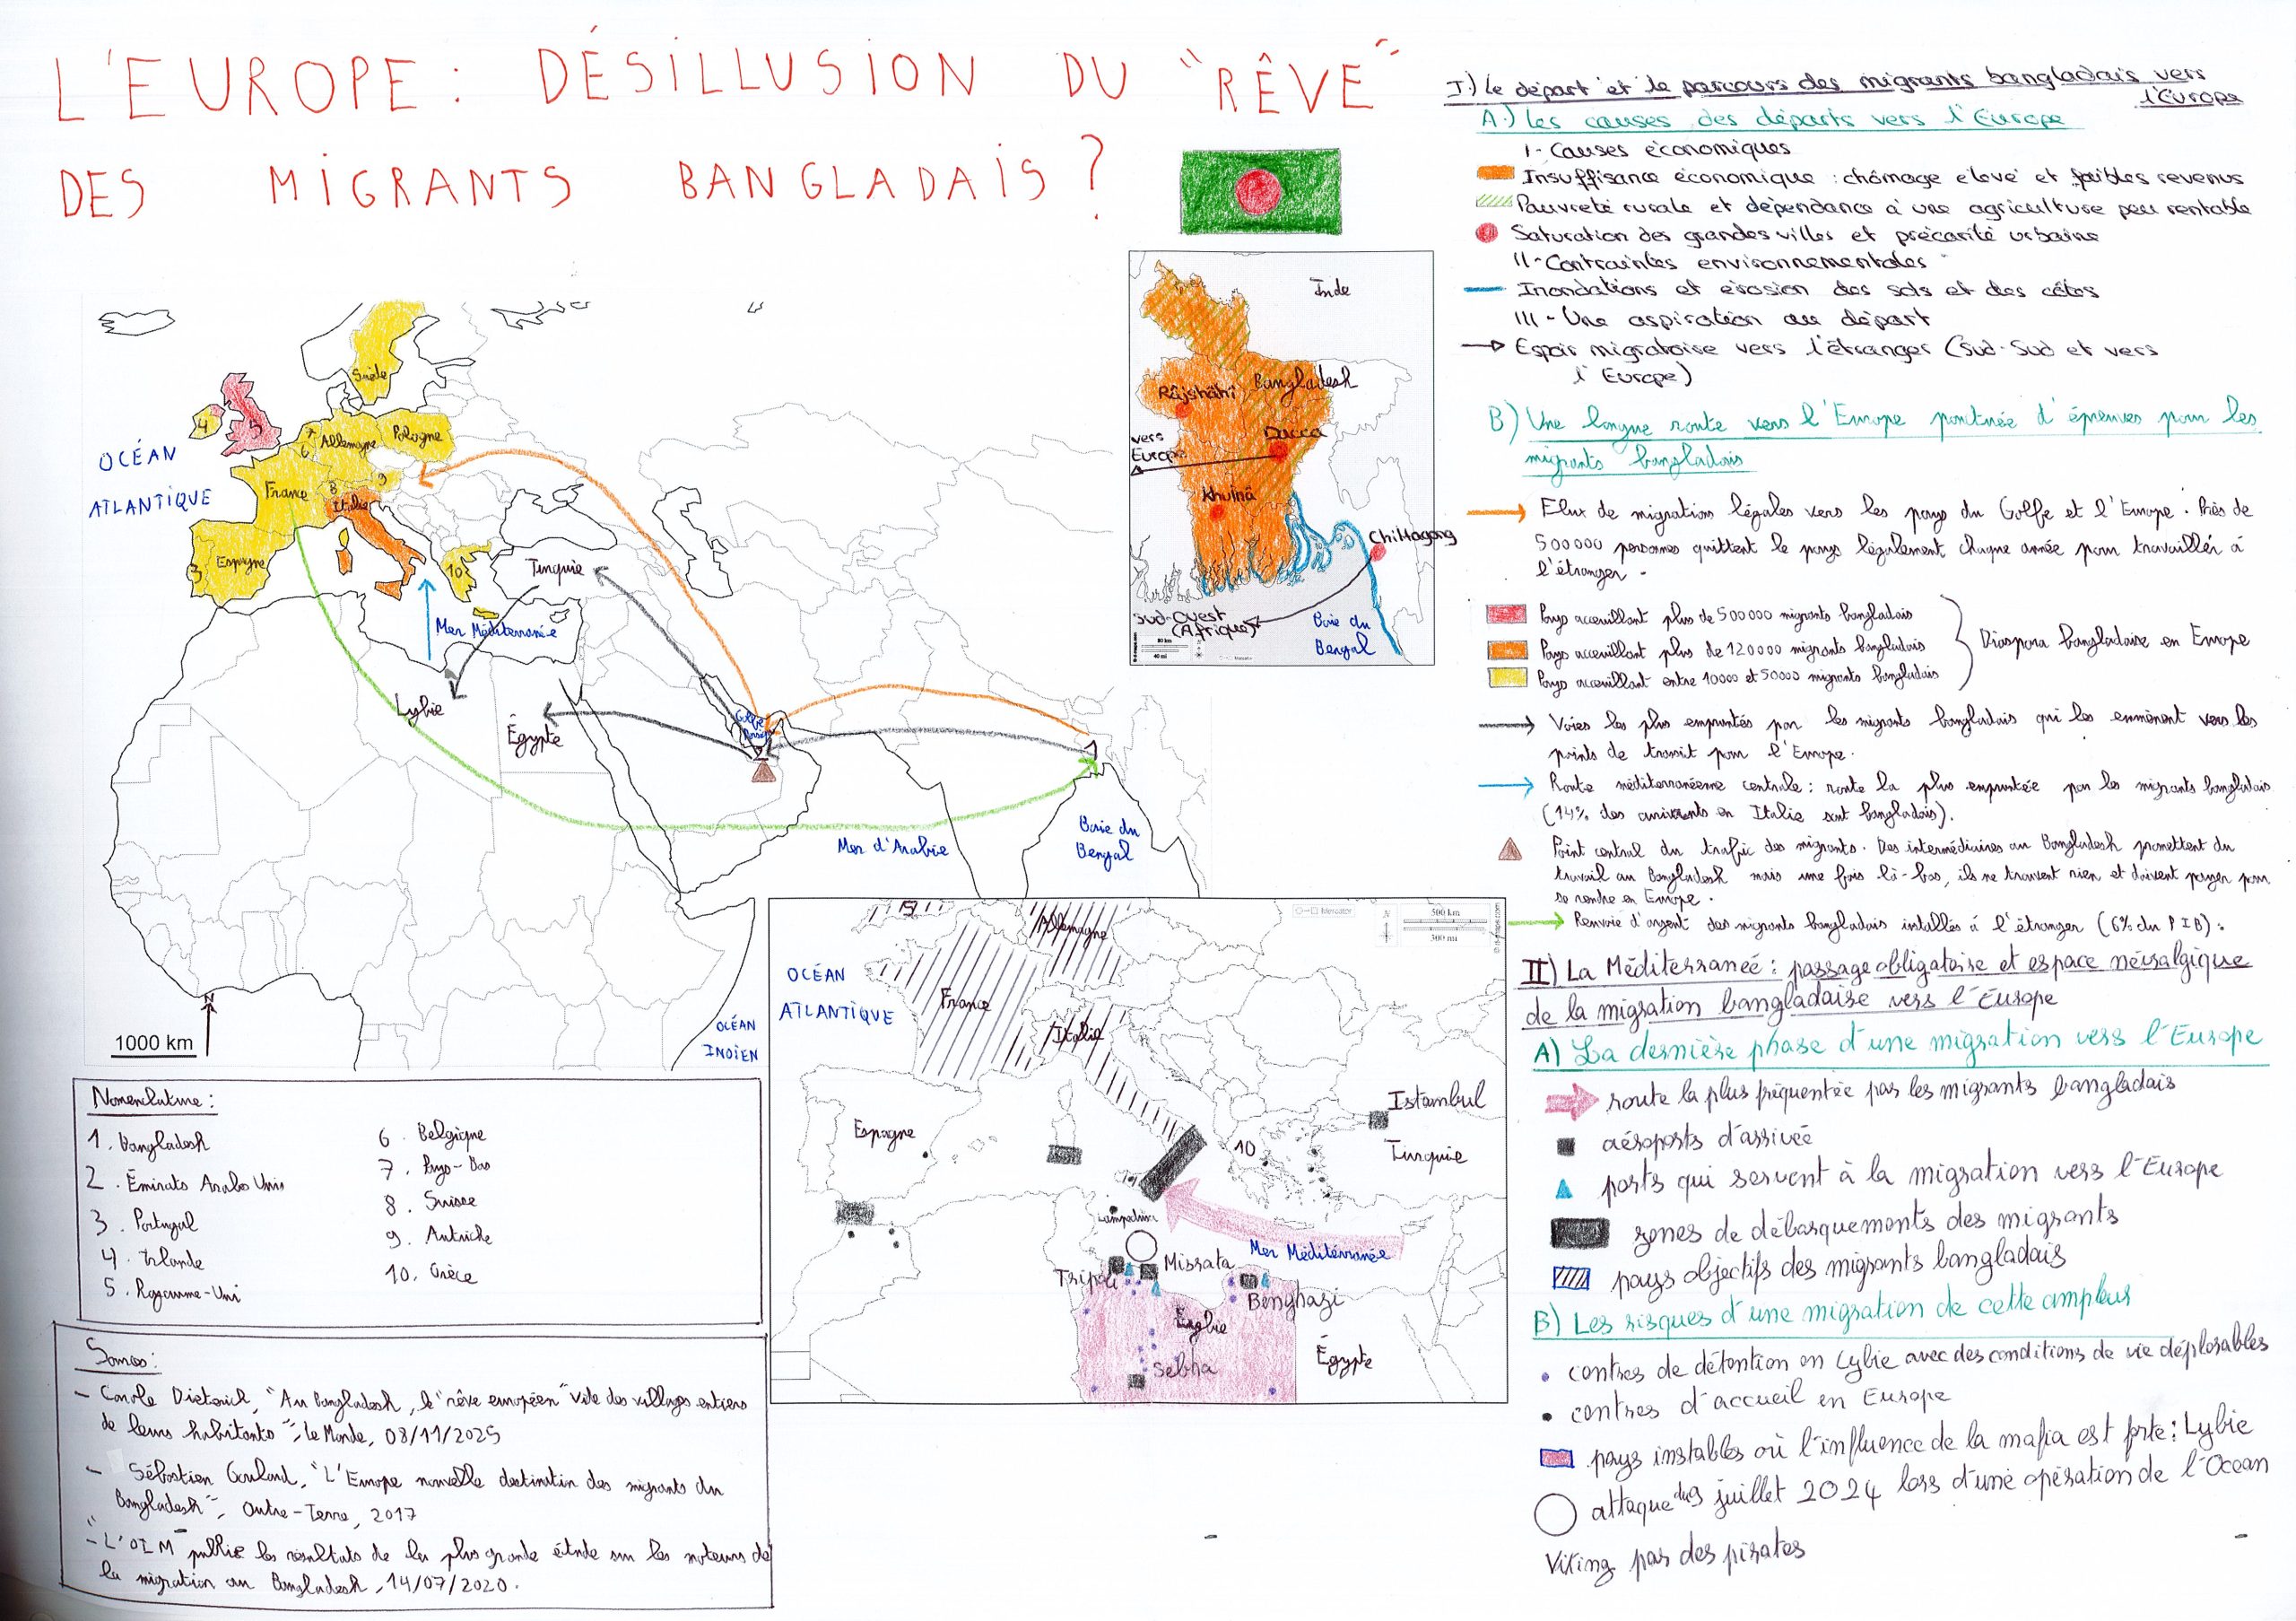 L'EUROPE : DÉSILLUSION DU "RÊVE"
DES MIGRANTS BANGLADAIS ?
Inde
Râjshâhî
Bangladesh
Dacca
vers
Europe
Khulnâ
Chittagong
Sud-Ouest
(Afrique)
Baie du
Bengal
80 km
40 mi
Suède
4
5
7
6
Allemagne
Pologne
OCÉAN
ATLANTIQUE
France
8
9
Italie
3
Espagne
10
Turquie
Mer Méditerranée
Lybie
Égypte
Golfe
Persique
2
1
Mer d'Arabie
Baie du
Bengal
N
1000 km
OCÉAN
INDIEN
5
Allemagne
Mercator
500 km
300 mi
OCÉAN
ATLANTIQUE
France
Italie
Istambul
Espagne
10
Turquie
Lampedusa
Mer Méditérranée
Missata
Tripoli
Benghazi
Lybie
Sebha
Égypte
Nomenclature :
1. Bangladesh
2. Émirats Arabes Unis
3. Portugal
4. Irlande
5. Royaume-Uni
6. Belgique
7. Pays-Bas
8. Suisse
9. Autriche
10. Grèce
Sources :
- Carole Dieterich, "Au Bangladesh, le "rêve européen" vide des villages entiers
de leurs habitants", Le Monde, 08/11/2025
- Sébastien Goulard, "L'Europe nouvelle destination des migrants du
Bangladesh", Outre-Terre, 2017
- "L'OIM publie les résultats de la plus grande étude sur les moteurs de
la migration au Bangladesh, 14/07/2020.
I.) Le départ et le parcours des migrants bangladais vers
l'Europe
A.) Les causes des départs vers l'Europe
I- Causes économiques
Insuffisance économique : chômage élevé et faibles revenus
Pauvreté rurale et dépendance à une agriculture peu rentable
Saturation des grandes villes et précarité urbaine
II- Contraintes environnementales
Inondations et érosion des sols et des côtes
III- Une aspiration au départ
Espoir migratoire vers l'étranger (Sud-Sud et vers
l'Europe)
B) Une longue route vers l'Europe pontuée d'épreuves pour les
migrants bangladais
Flux de migrations légales vers les pays du Golfe et l'Europe. Près de
500 000 personnes quittent le pays légalement chaque année pour travailler à
l'étranger.
Pays acceuillant plus de 500 000 migrants bangladais
Pays acceuillant plus de 120000 migrants bangladais
Pays acceuillant entre 10000 et 50000 migrants bangladais
Diaspora bangladaise en Europe
Voies les plus empruntés par les migrants bangladais qui les emmènent vers les
points de transit pour l'Europe.
Route méditerranéenne centrale : route la plus empruntée par les migrants bangladais
(14% des arrivants en Italie sont bangladais).
Point central du trafic des migrants. Des intermédiaires au Bangladesh promettent du
travail au Bangladesh mais une fois là-bas, ils ne trouvent rien et doivent payer pour
se rendre en Europe.
Renvoie d'argent des migrants bangladais installés à l'étranger (6% du PIB).
II) La Méditerraneé : passage obligatoire et espace névralgique
de la migration bangladaise vers l'Europe
A) La dernière phase d'une migration vers l'Europe
route la plus fréquentée par les migrants bangladais
aéroports d'arrivée
ports qui servent à la migration vers l'Europe
zones de débarquements des migrants
pays objectifs des migrants bangladais
B) Les risques d'une migration de cette ampleur
centres de détention en Lybie avec des conditions de vie déplorables
centres d'accueil en Europe
pays instables où l'influence de la mafia est forte : Lybie
attaque du 9 juillet 2024 lors d'une opération de l'Ocean
Viking par des pirates